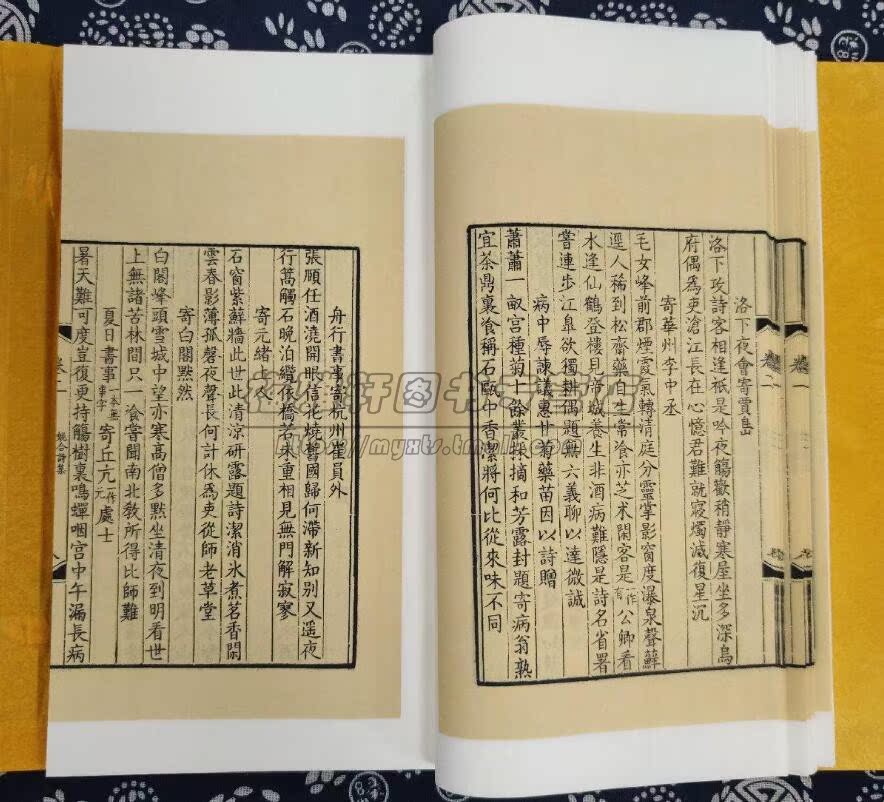 洛下夜會寄賈島
洛下攻詩客相逢祇是吟夜觴歡稍靜寒屋坐多深鳥
府偶爲吏滄江長在心憶君難就寢燭滅復星沉
寄華州李中丞
毛女峰前郡煙霞氣轉清庭分靈掌影窗度瀑泉聲蘚
逕人稀到松齋藥自生常飡亦芝术閑客是一作有公卿看
水逢仙鶴登樓見帝城養生非酒病難隱是詩名省署
嘗連步江皐欲獨耕偶題無六義聊以達微誠
病中辱諫議惠甘菊藥苗因以詩贈
蕭蕭一畝宮種菊十餘叢採摘和芳露封題寄病翁熟
宜茶鼎裏飡稱石甌中香潔將何比從來味不同
舟行書事寄杭州崔員外
張頎任酒澆開眼信花燒舊國歸何滯新知別又遥夜
行篙觸石晚泊纜依橋若不重相見無門解寂寥
寄元緒上人
石窗紫蘚牆此世此清涼研露題詩潔消氷煮茗香閑
雲春影薄孤磬夜聲長何計休爲吏從師老草堂
寄白閣默然
白閣峰頭雪城中望亦寒高僧多默坐清夜到明看世
上無諸苦林間只一飡嘗聞南北教所得比師難
夏日書事一本無事字寄丘亢一作元處士
暑天難可度豈復更持觴樹裏鳴蟬咽宮中午漏長病
卷二
姚合詩集
八
卷二
卷一
myxts.